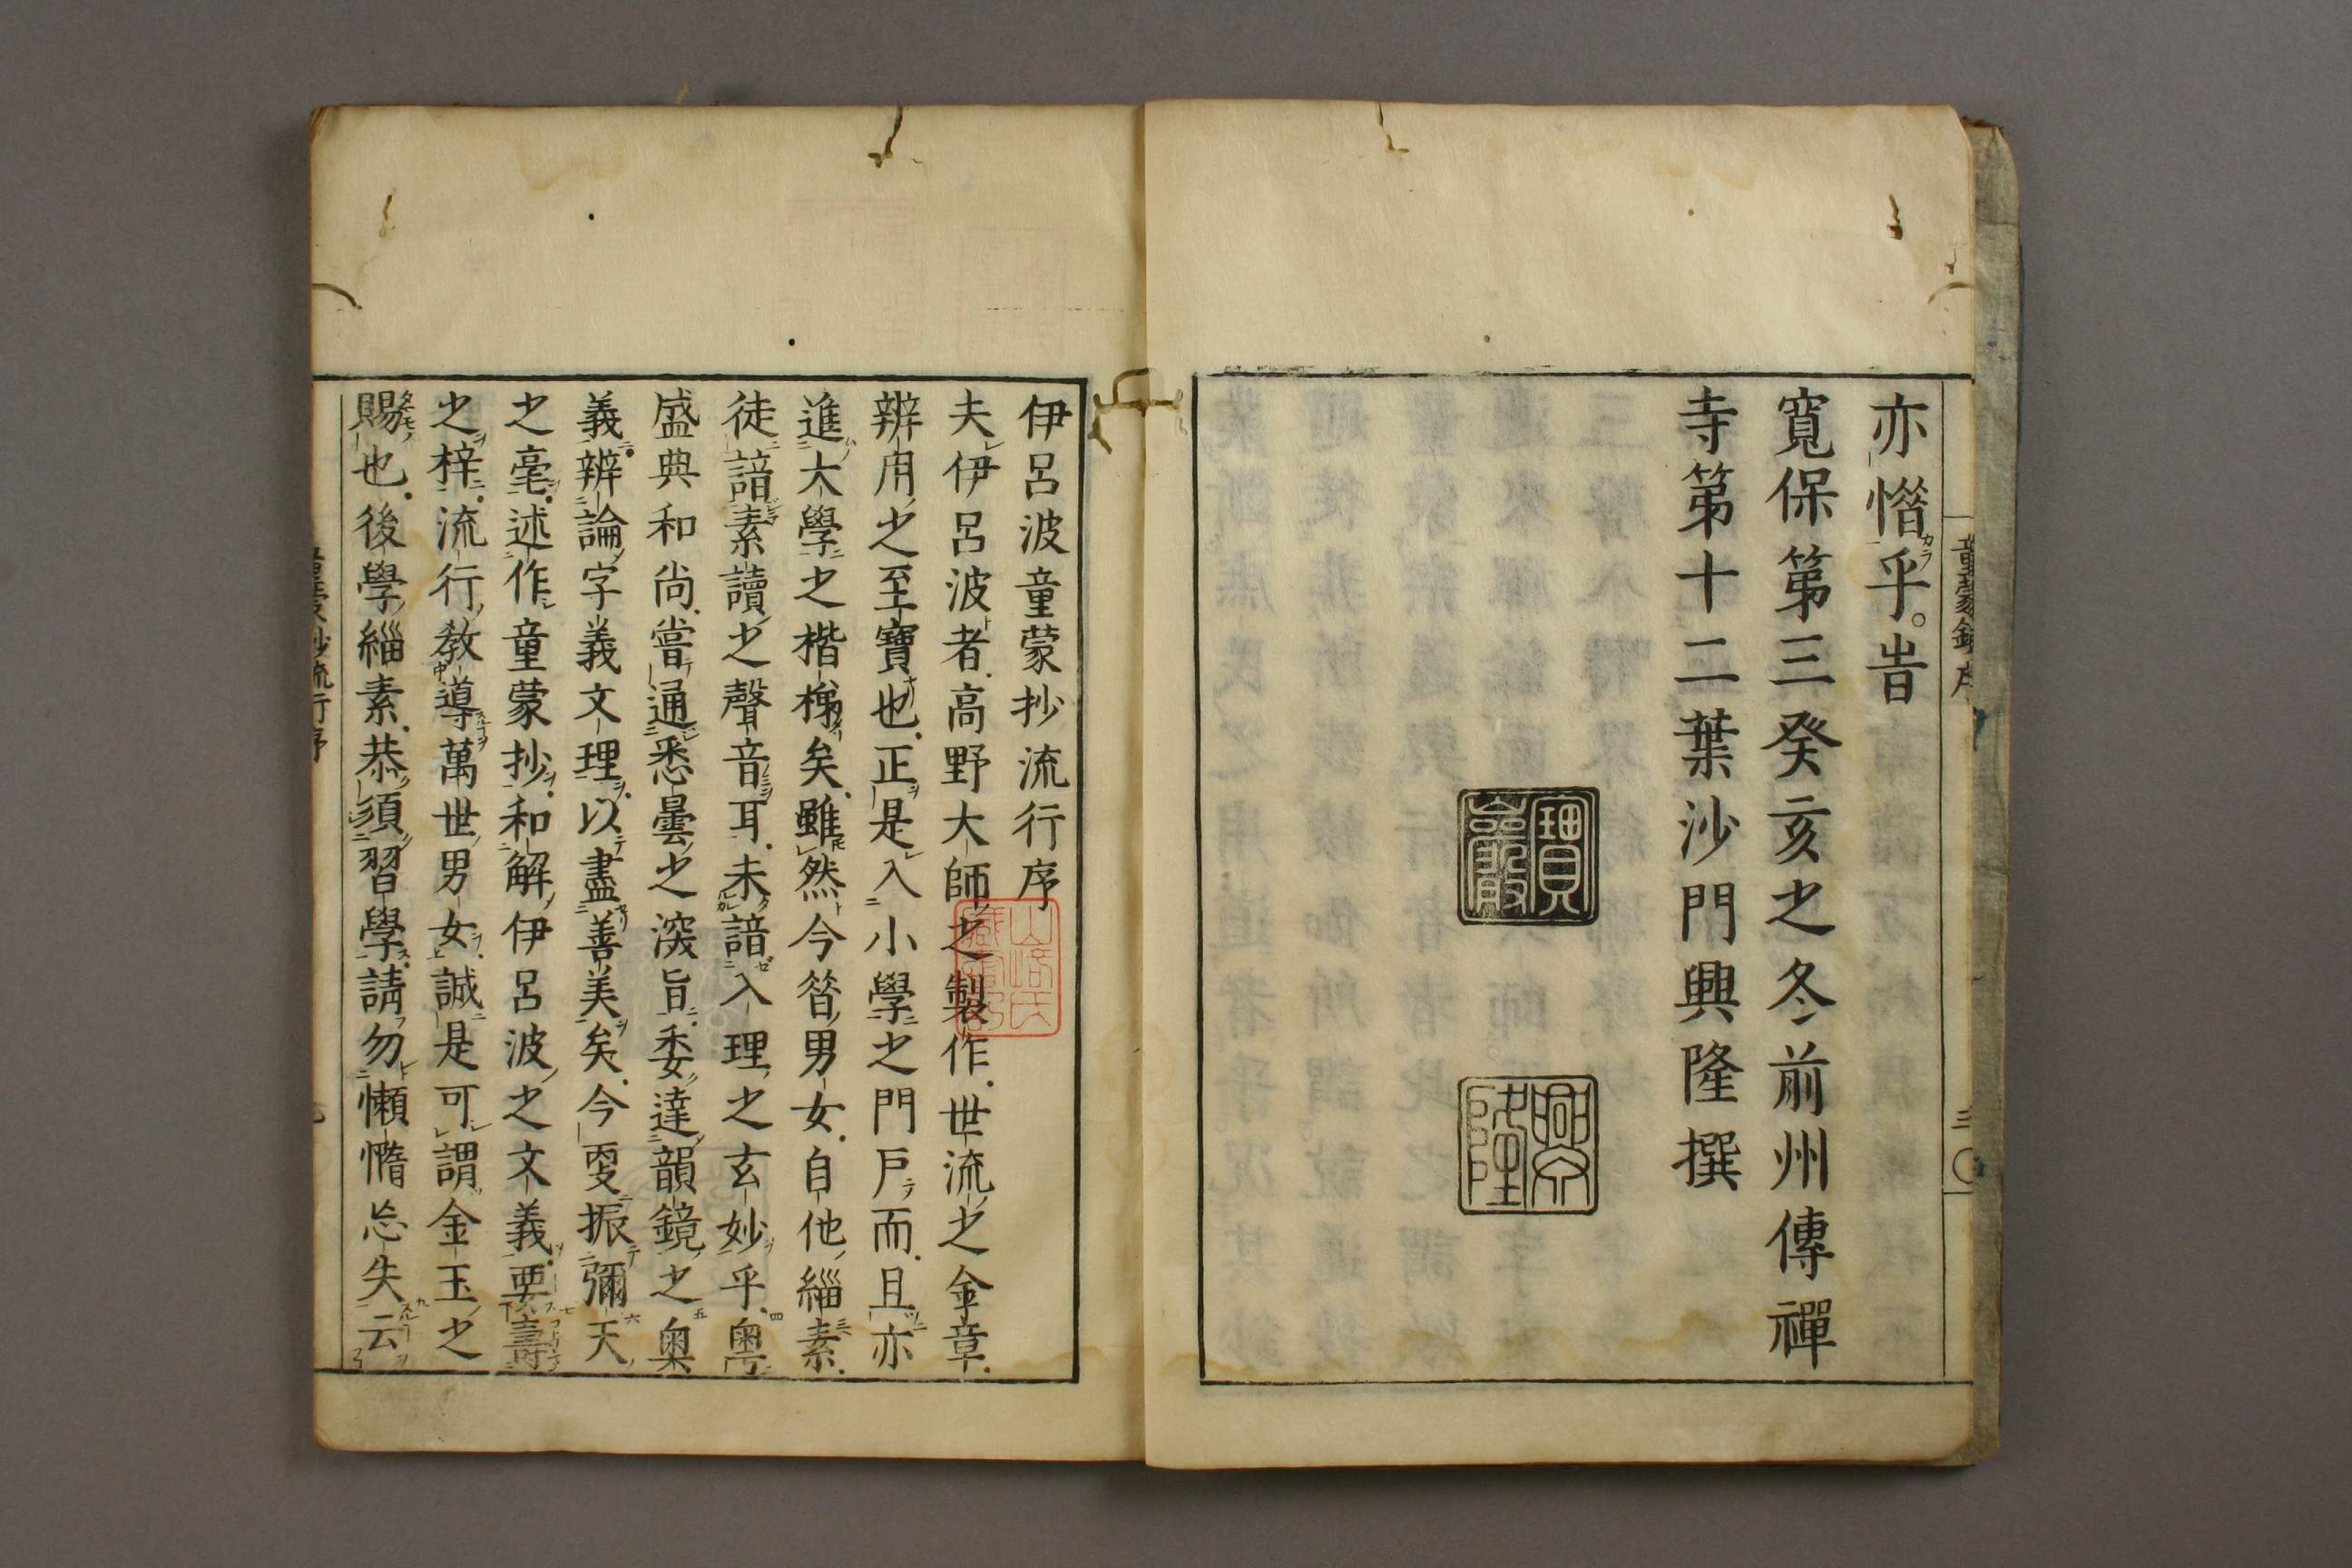 亦憯乎。旹
寬保第三癸亥之冬前州傳禪
寺第十二葉沙門興隆撰
興隆
伊呂波童蒙抄流行序
夫伊呂波者高野大師之製作世流之金章
辨用之至寶也正是入小學之門戸而且亦
進大學之楷梯矣雖然今簮男女自他緇素
徒諳素讀之聲音耳未諳入理之玄妙乎粤
盛典和尚嘗通悉曇之深旨委達韻鏡之奥
義辨論字義文理以盡善美矣今㪅振彌天
之毫述作童蒙抄和解伊呂波之文義要壽
之梓流行教導萬世男女誠是可謂金玉之
賜也後學緇素恭須習學請勿懶憜忘失云